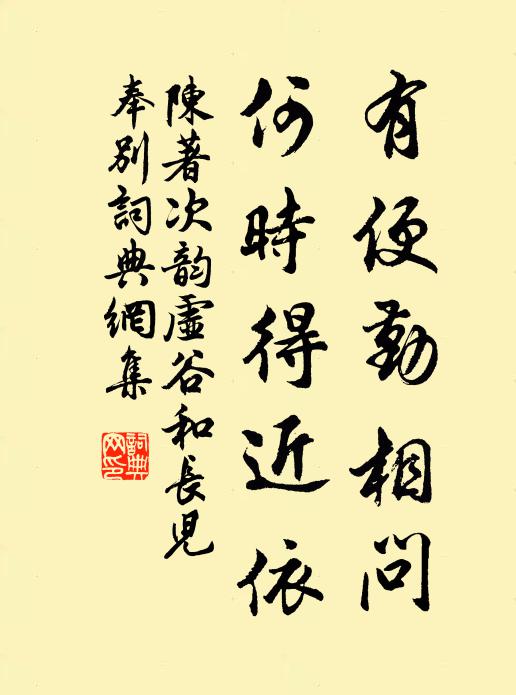 有便勤相問
何時得近依
陳著次韵虛谷和長児
奉別詞典網集
詞典
网印